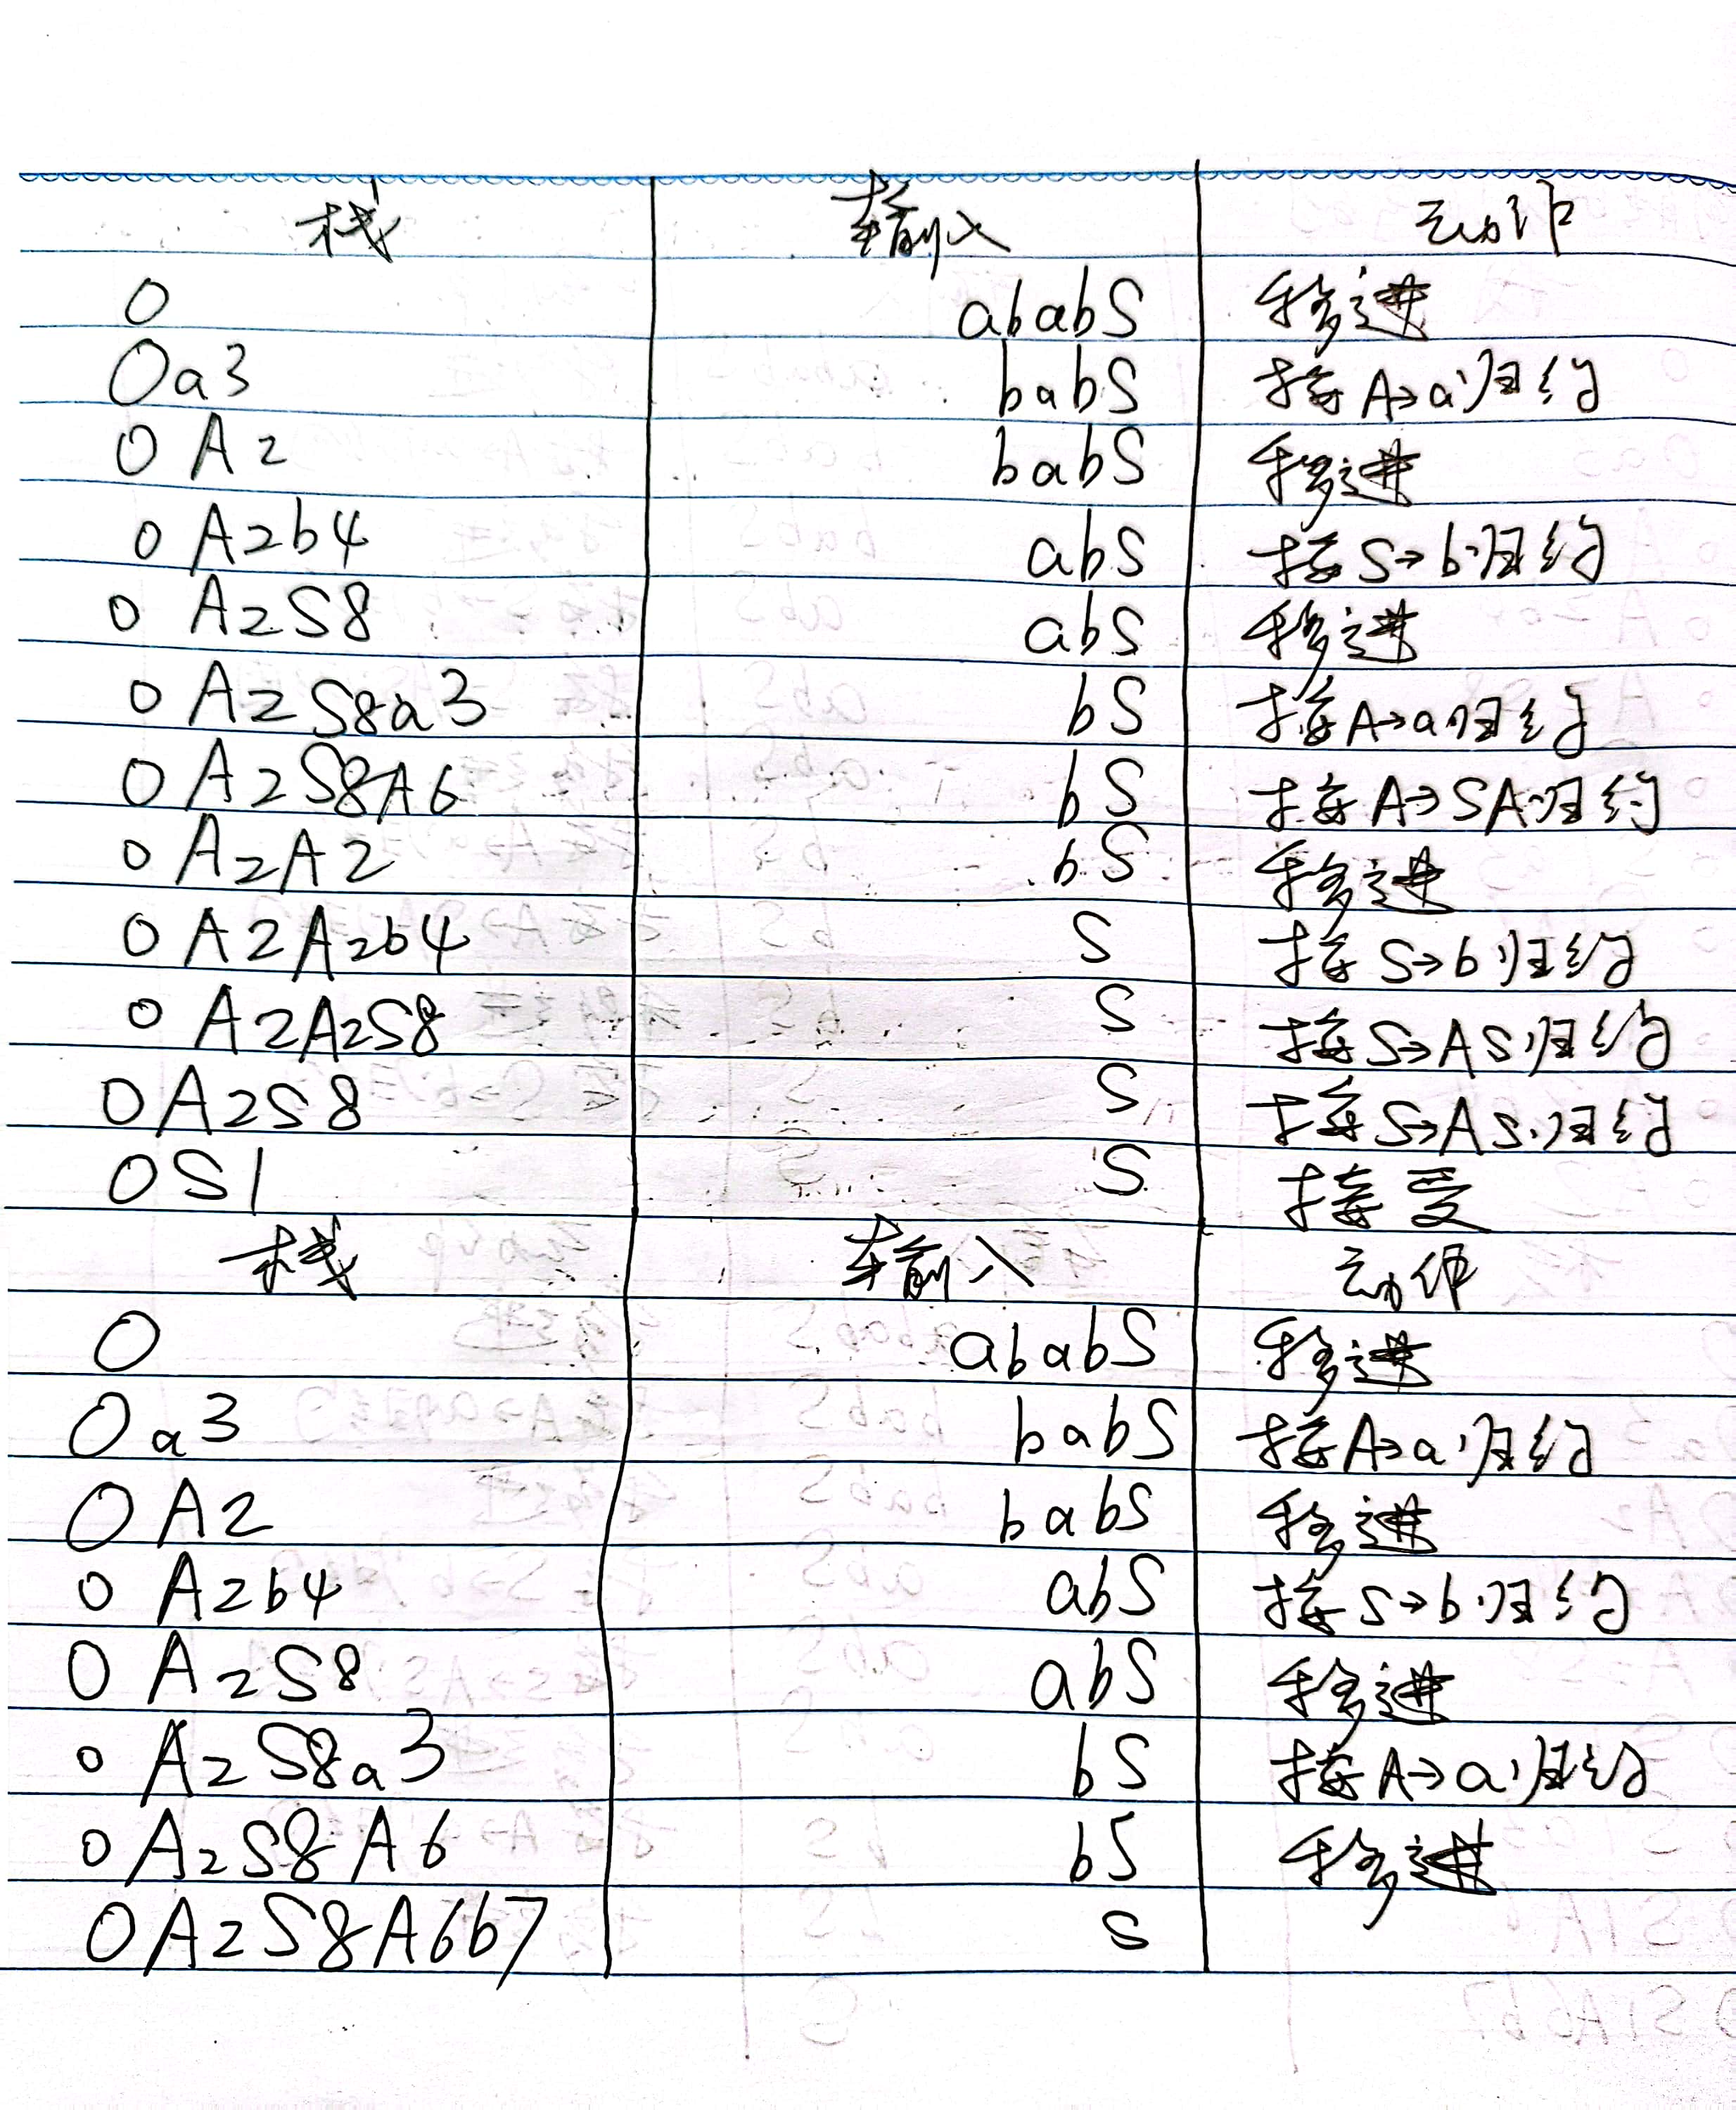 栈 输入 动作
0 ababS 移进
0a3 babS 按A→a归约
0A2 babS 移进
0A2b4 abS 按S→b归约
0A2S8 abS 移进
0A2S8a3 bS 按A→a归约
0A2S8A6 bS 按A→SA归约
0A2A2 bS 移进
0A2A2b4 S 按S→b归约
0A2A2S8 S 按S→AS归约
0A2S8 S 按S→AS归约
0S1 S 接受
栈 输入 动作
0 ababS 移进
0a3 babS 按A→a归约
0A2 babS 移进
0A2b4 abS 按S→b归约
0A2S8 abS 移进
0A2S8a3 bS 按A→a归约
0A2S8A6 bS 移进
0A2S8A6b7 S